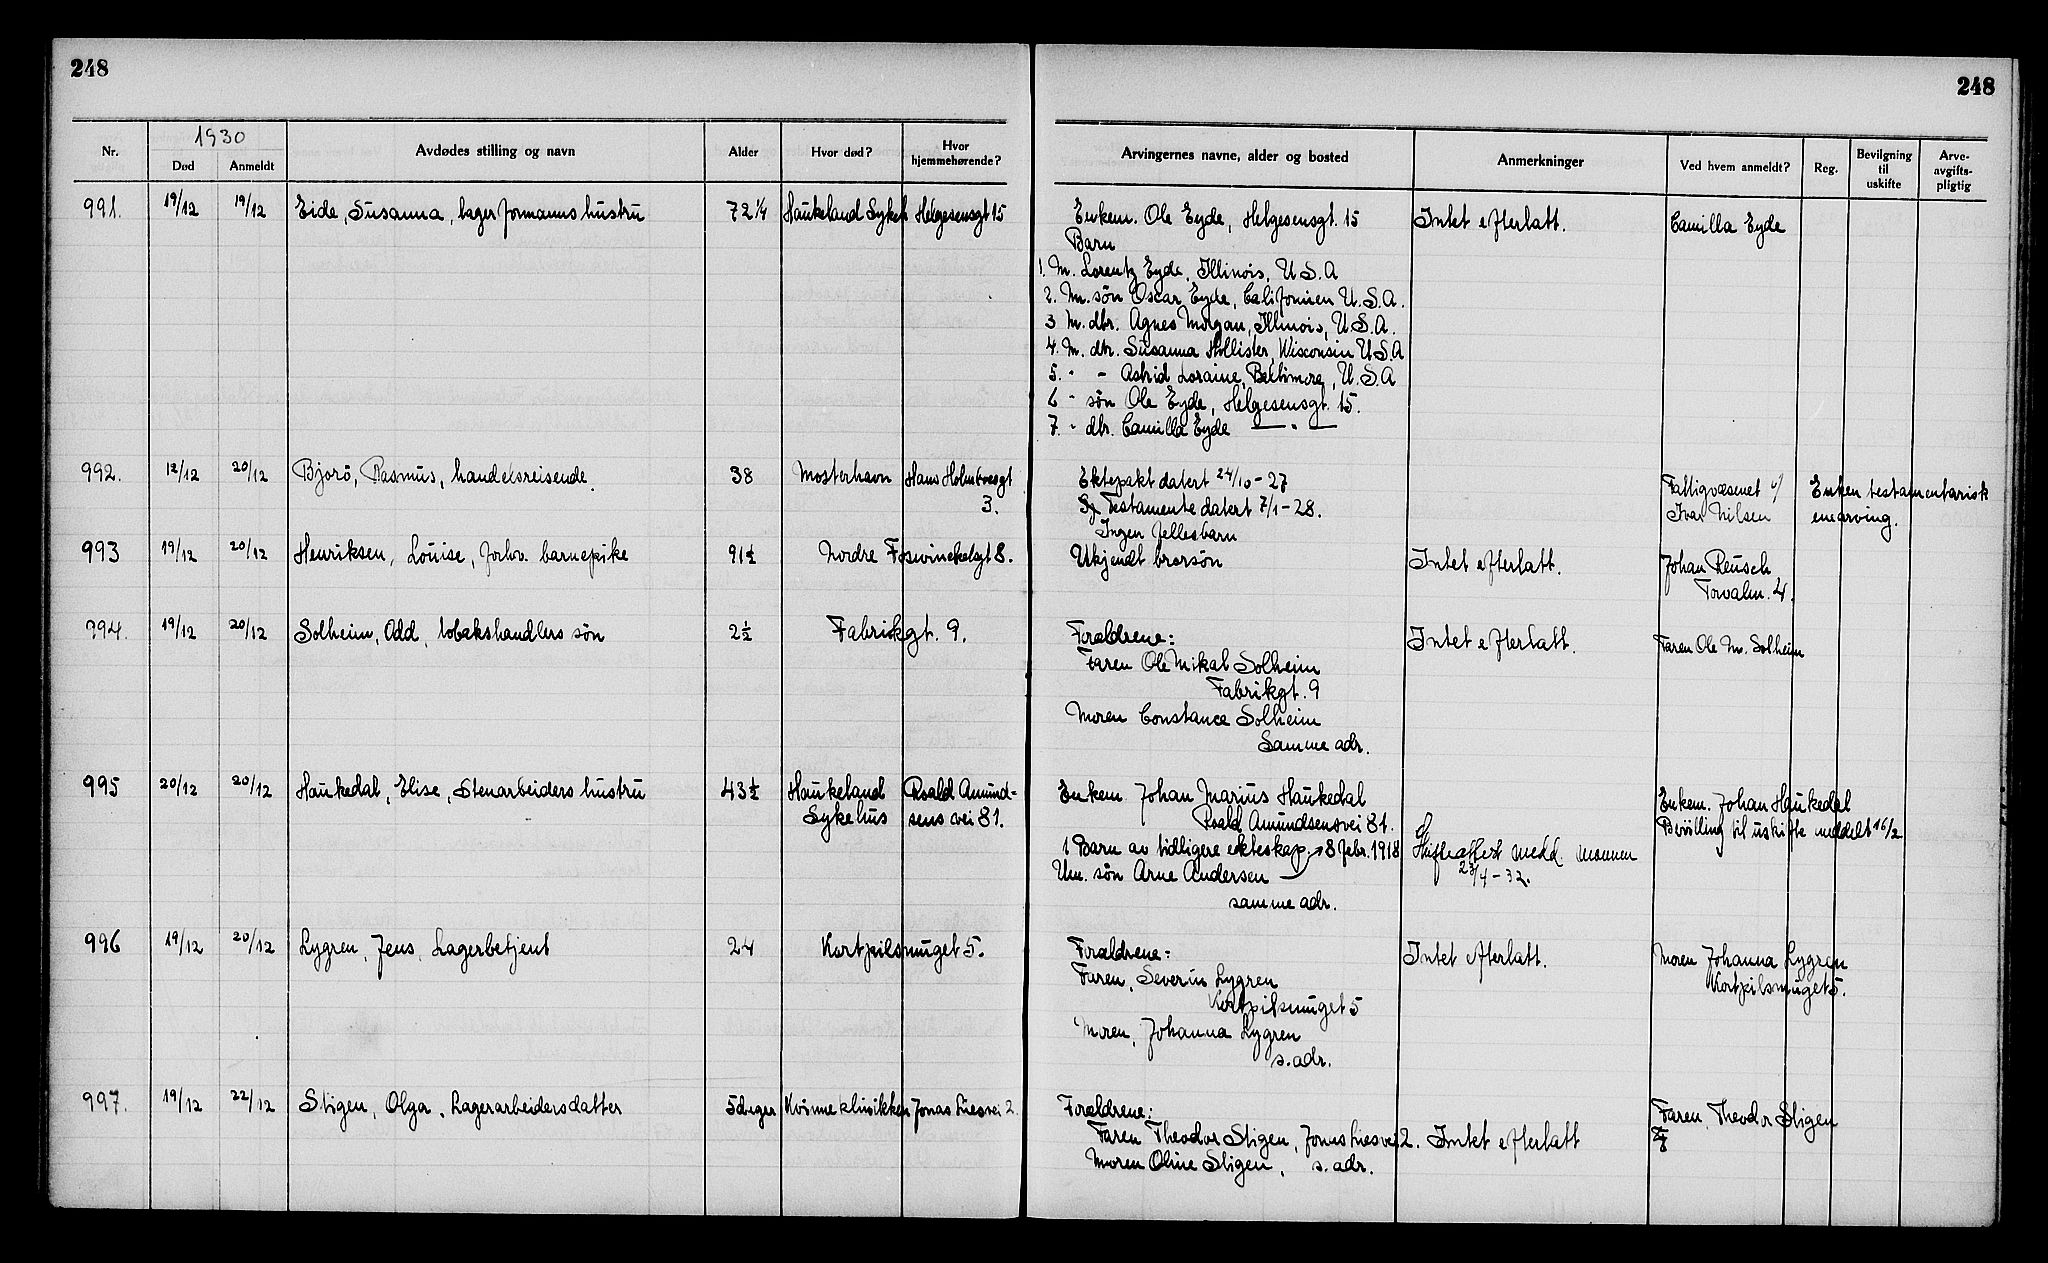 248
248
Nr.
1930
Død
Anmeldt
Avdødes stilling og navn
Alder
Hvor død?
Hvor hjemmehørende?
Arvingernes navne, alder og bosted
Anmerkninger
Ved hvem anmeldt?
Reg.
Bevilgning til uskifte
Arve-avgifts-pligtig
991. 19/12 19/12 Eide, Susanna, lagerformanns hustru 72 1/4 Haukeland Sykeh Helgesensgt 15 Enkem. Ole Eyde, Helgesensgt. 15 Intet efterlatt. Camilla Eyde
Barn
1. M. Lorentz Eyde, Illinois, U.S.A
2. M. søn Oscar Eyde, Californien U.S.A.
3 M. dtr. Agnes Morgan, Illinois, U.S.A.
4. M. dtr. Susanna Hollister, Wisconsin U.S.A
5. " - Astrid Loraine, Baltimore, U.S.A
6 " søn Ole Eyde, Helgesensgt. 15.
7. " dtr. Camilla Eyde — " —
992. 12/12 20/12 Bjorö, Rasmus, handelsreisende. 38 Mosterhavn Hans Holmboesgt 3. Ektepakt datert 24/10-27 Fattigvæsenet v/ Enken testamentarisk
Testamente datert 7/1-28. Ivar Nilsen enearving.
Ingen fellesbarn
993 19/12 20/12 Henriksen, Louise, forhv. barnepike 91 1/2 Nordre Foswinckelsgt 8. Ukjendt brorsøn Intet efterlatt. Johan Reusch
Torvalm. 4.
994. 19/12 20/12 Solheim, Odd, tobakshandlers søn 2 1/2 Fabrikgt. 9. Foreldrene: Intet efterlatt. Faren Ole M. Solheim
Faren Ole Mikal Solheim
Fabrikgt. 9
Moren Constance Solheim
Samme adr.
995 20/12 20/12 Haukedal, Elise, Stenarbeiders hustru 43 1/2 Haukeland Sykehus Roald Amund-sens vei 81. Enkem. Johan Marius Haukedal Enkem. Johan Haukedal
Roald Amundsensvei 81. Bevilling til uskifte meddelt 16/2
1 Barn av tidligere ekteskap. 8 febr. 1918 Skifteattest medd. mannen
Um. søn Arne Andersen 23/4-32.
samme adr.
996 19/12 20/12 Lygren, Jens, Lagerbetjent 24 Kortpilsmuget 5. Foreldrene: Intet efterlatt. Moren Johanna Lygren
Faren, Severin Lygren Kortpilsmuget 5.
Kortpilsmuget 5
Moren, Johanna Lygren
s. adr.
997. 19/12 22/12 Stigen, Olga, Lagerarbeidersdatter 5 dager Kvinneklinikken Jonas Liesvei 2. Foreldrene: Faren, Theodor Stigen
Faren Theodor Stigen, Jonas Liesvei 2. Intet efterlatt
Moren Oline Stigen, s. adr.